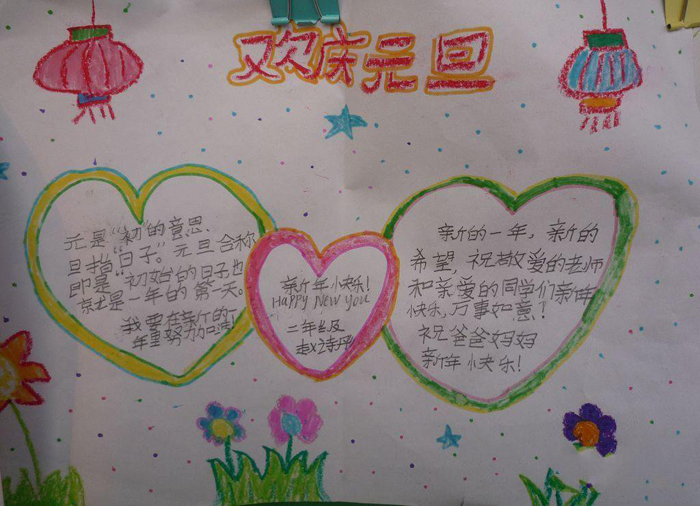 欢庆元旦
元是“初”的意思.
旦指“日子”。元旦合称
即是“初始的日子也
就是一年的第一天。
我要在新的一
年里努力加油!
新年快乐!
HAPPY NEW YOU
二年级
赵诗
新的一年,新的
希望,祝敬爱的老师
和亲爱的同学们新年
快乐,万事如意!
祝爸爸妈妈
新年快乐!